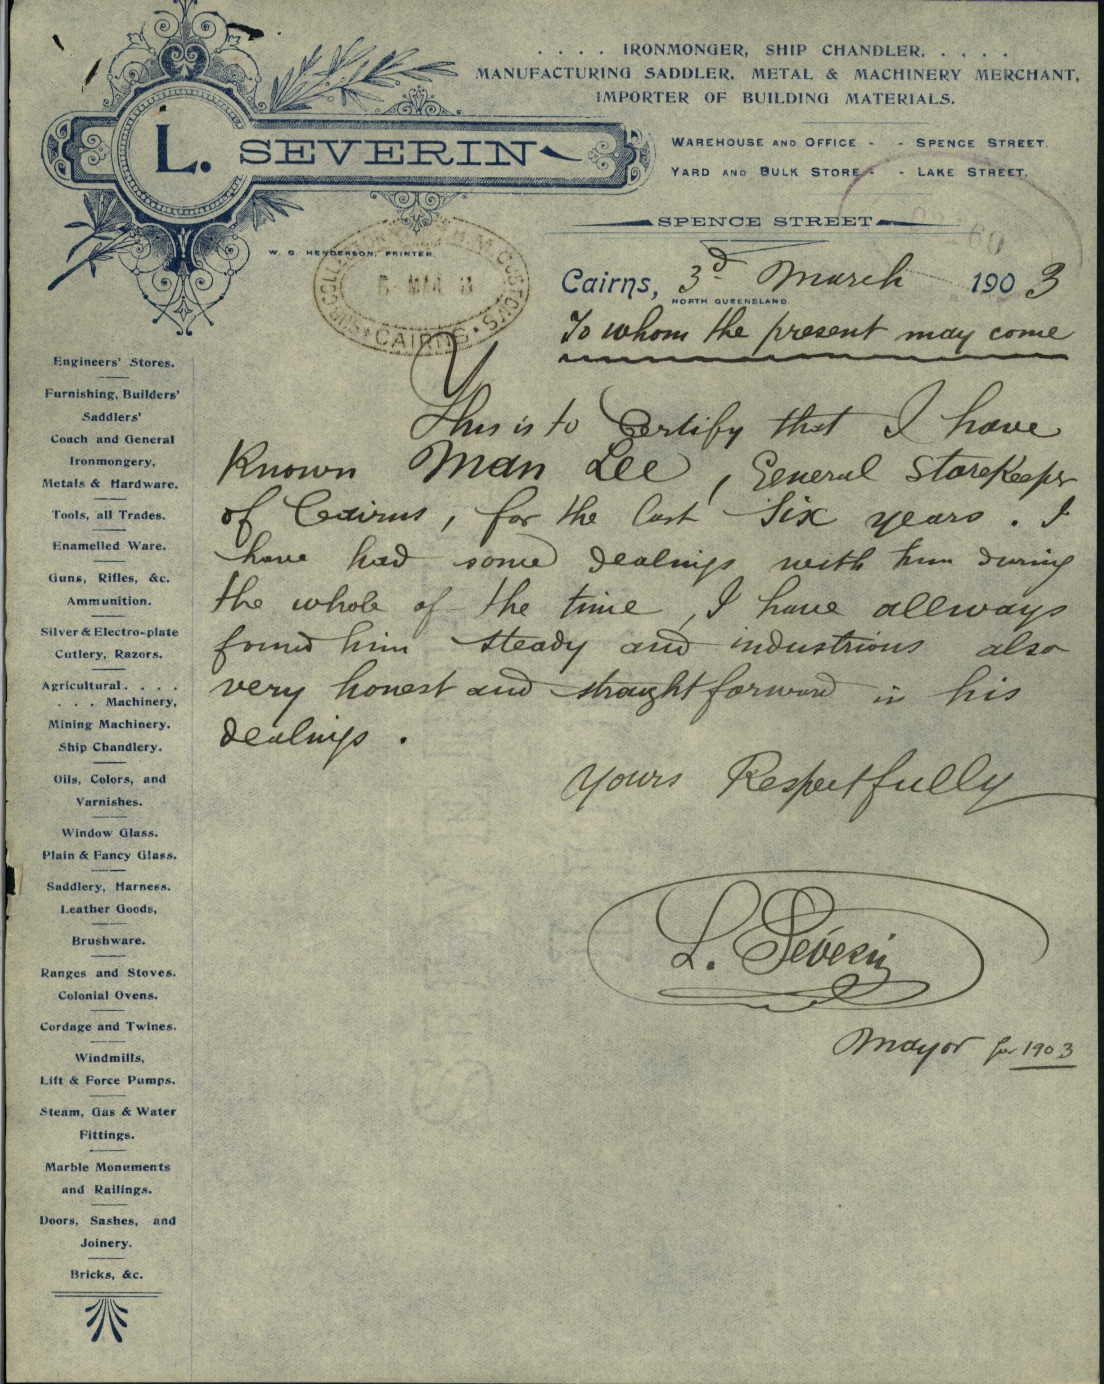 . . . . IRONMONGER, SHIP CHANDLER, . . . .
MANUFACTURING SADDLER, METAL & MACHINERY MERCHANT,
IMPORTER OF BUILDING MATERIALS.
L. SEVERIN
WAREHOUSE AND OFFICE - - SPENCE STREET.
YARD AND BULK STORE - - LAKE STREET.
SPENCE STREET
W. G. HENDERSON, PRINTER.
H.M. CUSTOMS
CAIRNS
Cairns, 3d March 1903
NORTH QUEENSLAND
To whom the present may come
This is to Certify that I have
Known Man Lee, General StoreKeeper
of Cairns, for the last Six years. I
have had some dealings with him during
the whole of the time, I have allways
found him steady and industrious also
very honest and straightforward in his
dealings.
Yours Respectfully
L. Severin
Mayor for 1903
Engineers' Stores.
Furnishing, Builders'
Saddlers'
Coach and General
Ironmongery,
Metals & Hardware.
Tools, all Trades.
Enamelled Ware.
Guns, Rifles, &c.
Ammunition.
Silver & Electro-plate
Cutlery, Razors.
Agricultural. . . .
. . . Machinery,
Mining Machinery.
Ship Chandlery.
Oils, Colors, and
Varnishes.
Window Glass.
Plain & Fancy Glass.
Saddlery, Harness.
Leather Goods,
Brushware.
Ranges and Stoves.
Colonial Ovens.
Cordage and Twines.
Windmills,
Lift & Force Pumps.
Steam, Gas & Water
Fittings.
Marble Monuments
and Railings.
Doors, Sashes, and
Joinery.
Bricks, &c.